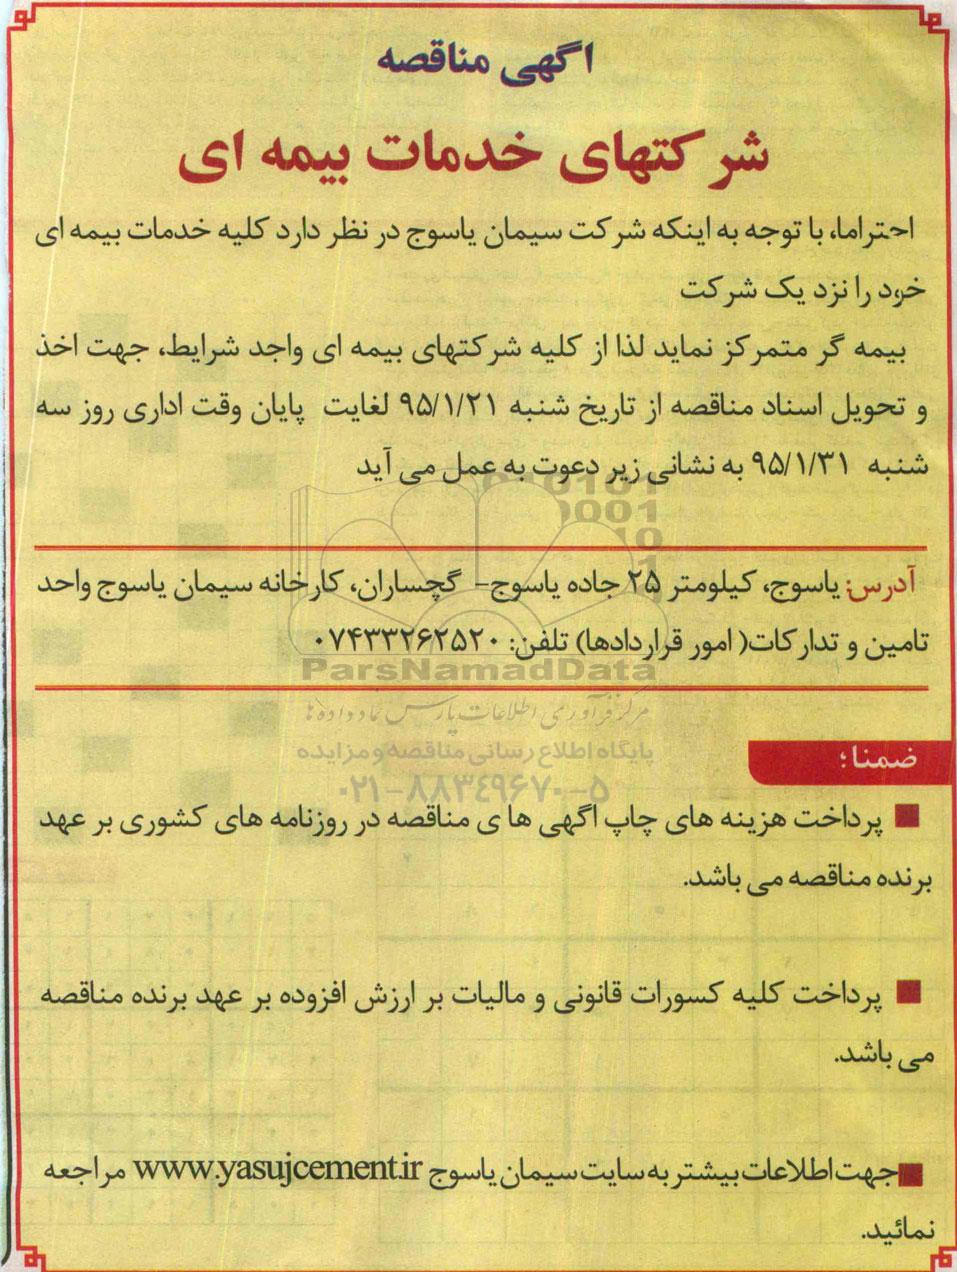 اگهی مناقصه
شرکتهای خدمات بیمه ای
احتراما، با توجه به اینکه شرکت سیمان یاسوج در نظر دارد کلیه خدمات بیمه ای
خود را نزد یک شرکت
بیمه گر متمرکز نماید لذا از کلیه شرکتهای بیمه ای واجد شرایط، جهت اخذ
و تحویل اسناد مناقصه از تاریخ شنبه ۹۵/۱/۲۱ لغایت پایان وقت اداری روز سه
شنبه ۹۵/۱/۳۱ به نشانی زیر دعوت به عمل می آید
آدرس: یاسوج، کیلومتر ۲۵ جاده یاسوج- گچساران، کارخانه سیمان یاسوج واحد
تامین و تدارکات( امور قراردادها) تلفن: ۰۷۴۳۳۲۶۲۵۲۰
ParsNamadData
مرکز فرآوری اطلاعات پارس نماد داده ها
پایگاه اطلاع رسانی مناقصه و مزایده
۰۲۱-۸۸۳۴۹۶۷۰-۵
ضمنا؛
پرداخت هزینه های چاپ اگهی ها ی مناقصه در روزنامه های کشوری بر عهد
برنده مناقصه می باشد.
پرداخت کلیه کسورات قانونی و مالیات بر ارزش افزوده بر عهد برنده مناقصه
می باشد.
جهت اطلاعات بیشتر به سایت سیمان یاسوج www.yasujcement.ir مراجعه
نمائید.